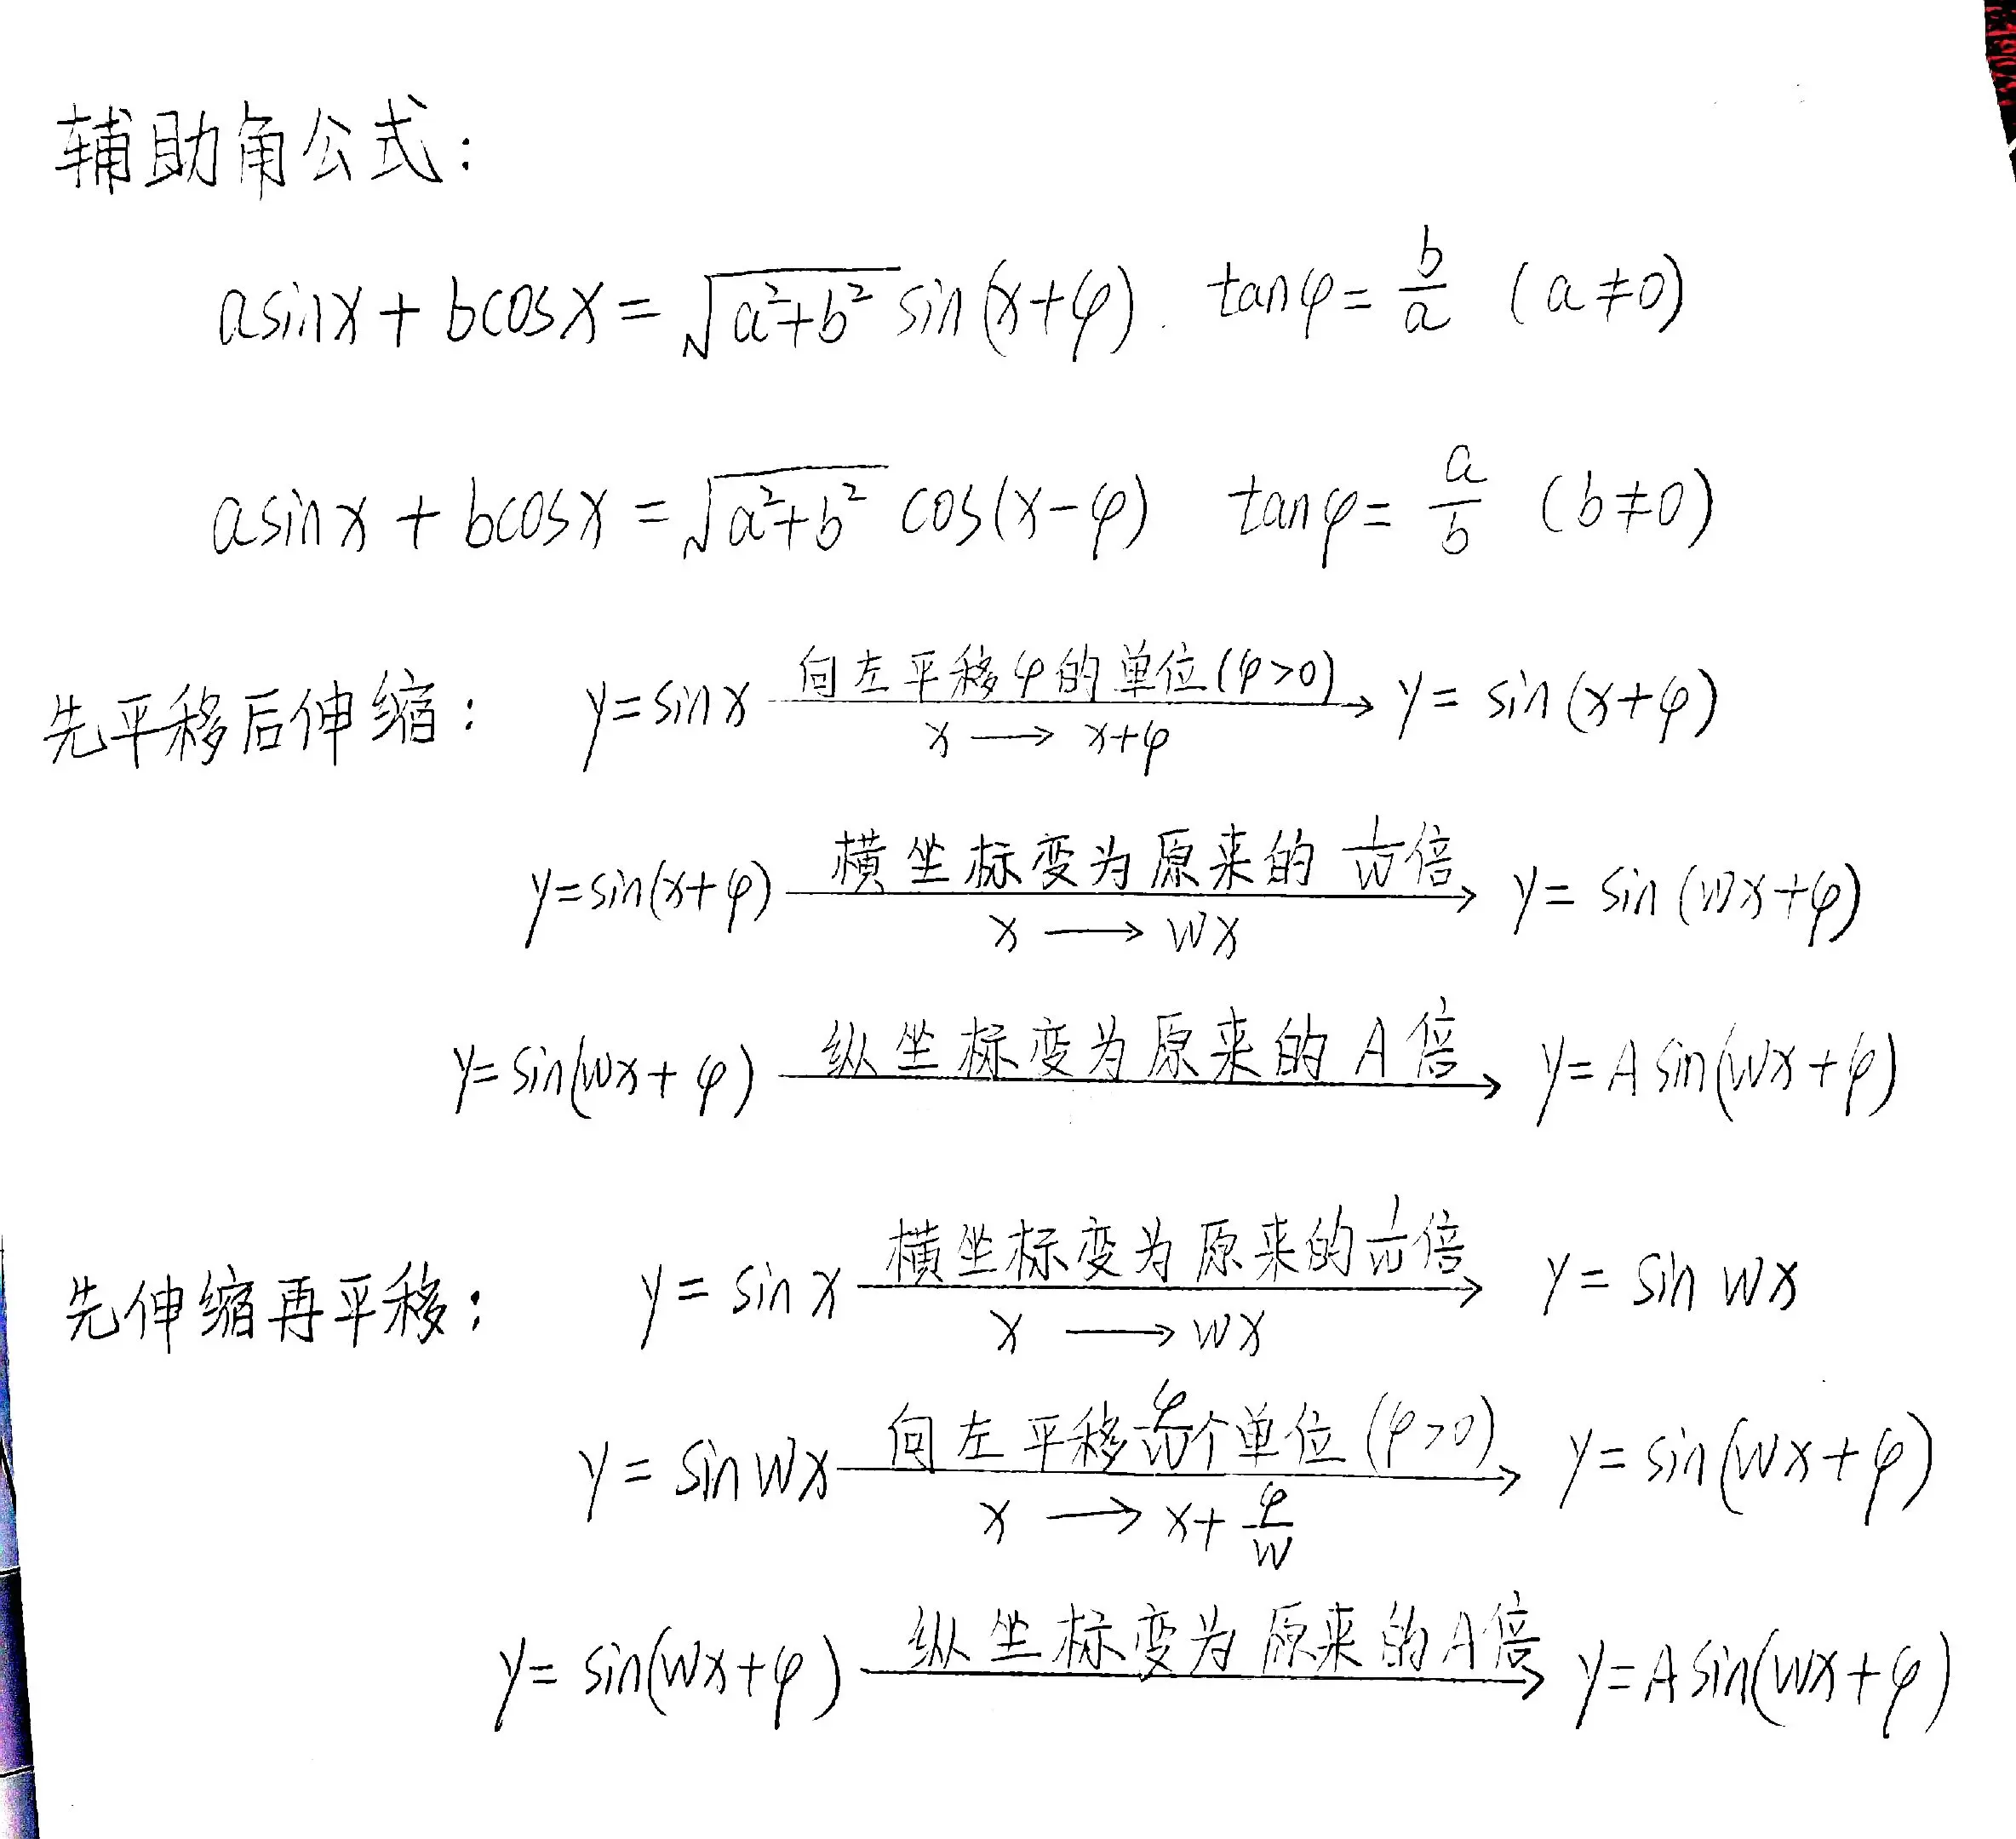 辅助角公式：
asinx + bcosx = √(a²+b²) sin(x+φ). tanφ = b/a (a≠0)
asinx + bcosx = √(a²+b²) cos(x-φ) tanφ = a/b (b≠0)
先平移后伸缩： y=sinx 向左平移φ的单位(φ>0) → y= sin(x+φ)
x → x+φ
y=sin(x+φ) 横坐标变为原来的 1/w 倍 → y= sin(wx+φ)
x → wx
y=sin(wx+φ) 纵坐标变为原来的A倍 → y=Asin(wx+φ)
先伸缩再平移； y= sinx 横坐标变为原来的 1/w 倍 → y= sin wx
x → wx
y= sin wx 向左平移 φ/w 个单位(φ>0) → y= sin(wx+φ)
x → x+ φ/w
y= sin(wx+φ) 纵坐标变为原来的A倍 → y=Asin(wx+φ)